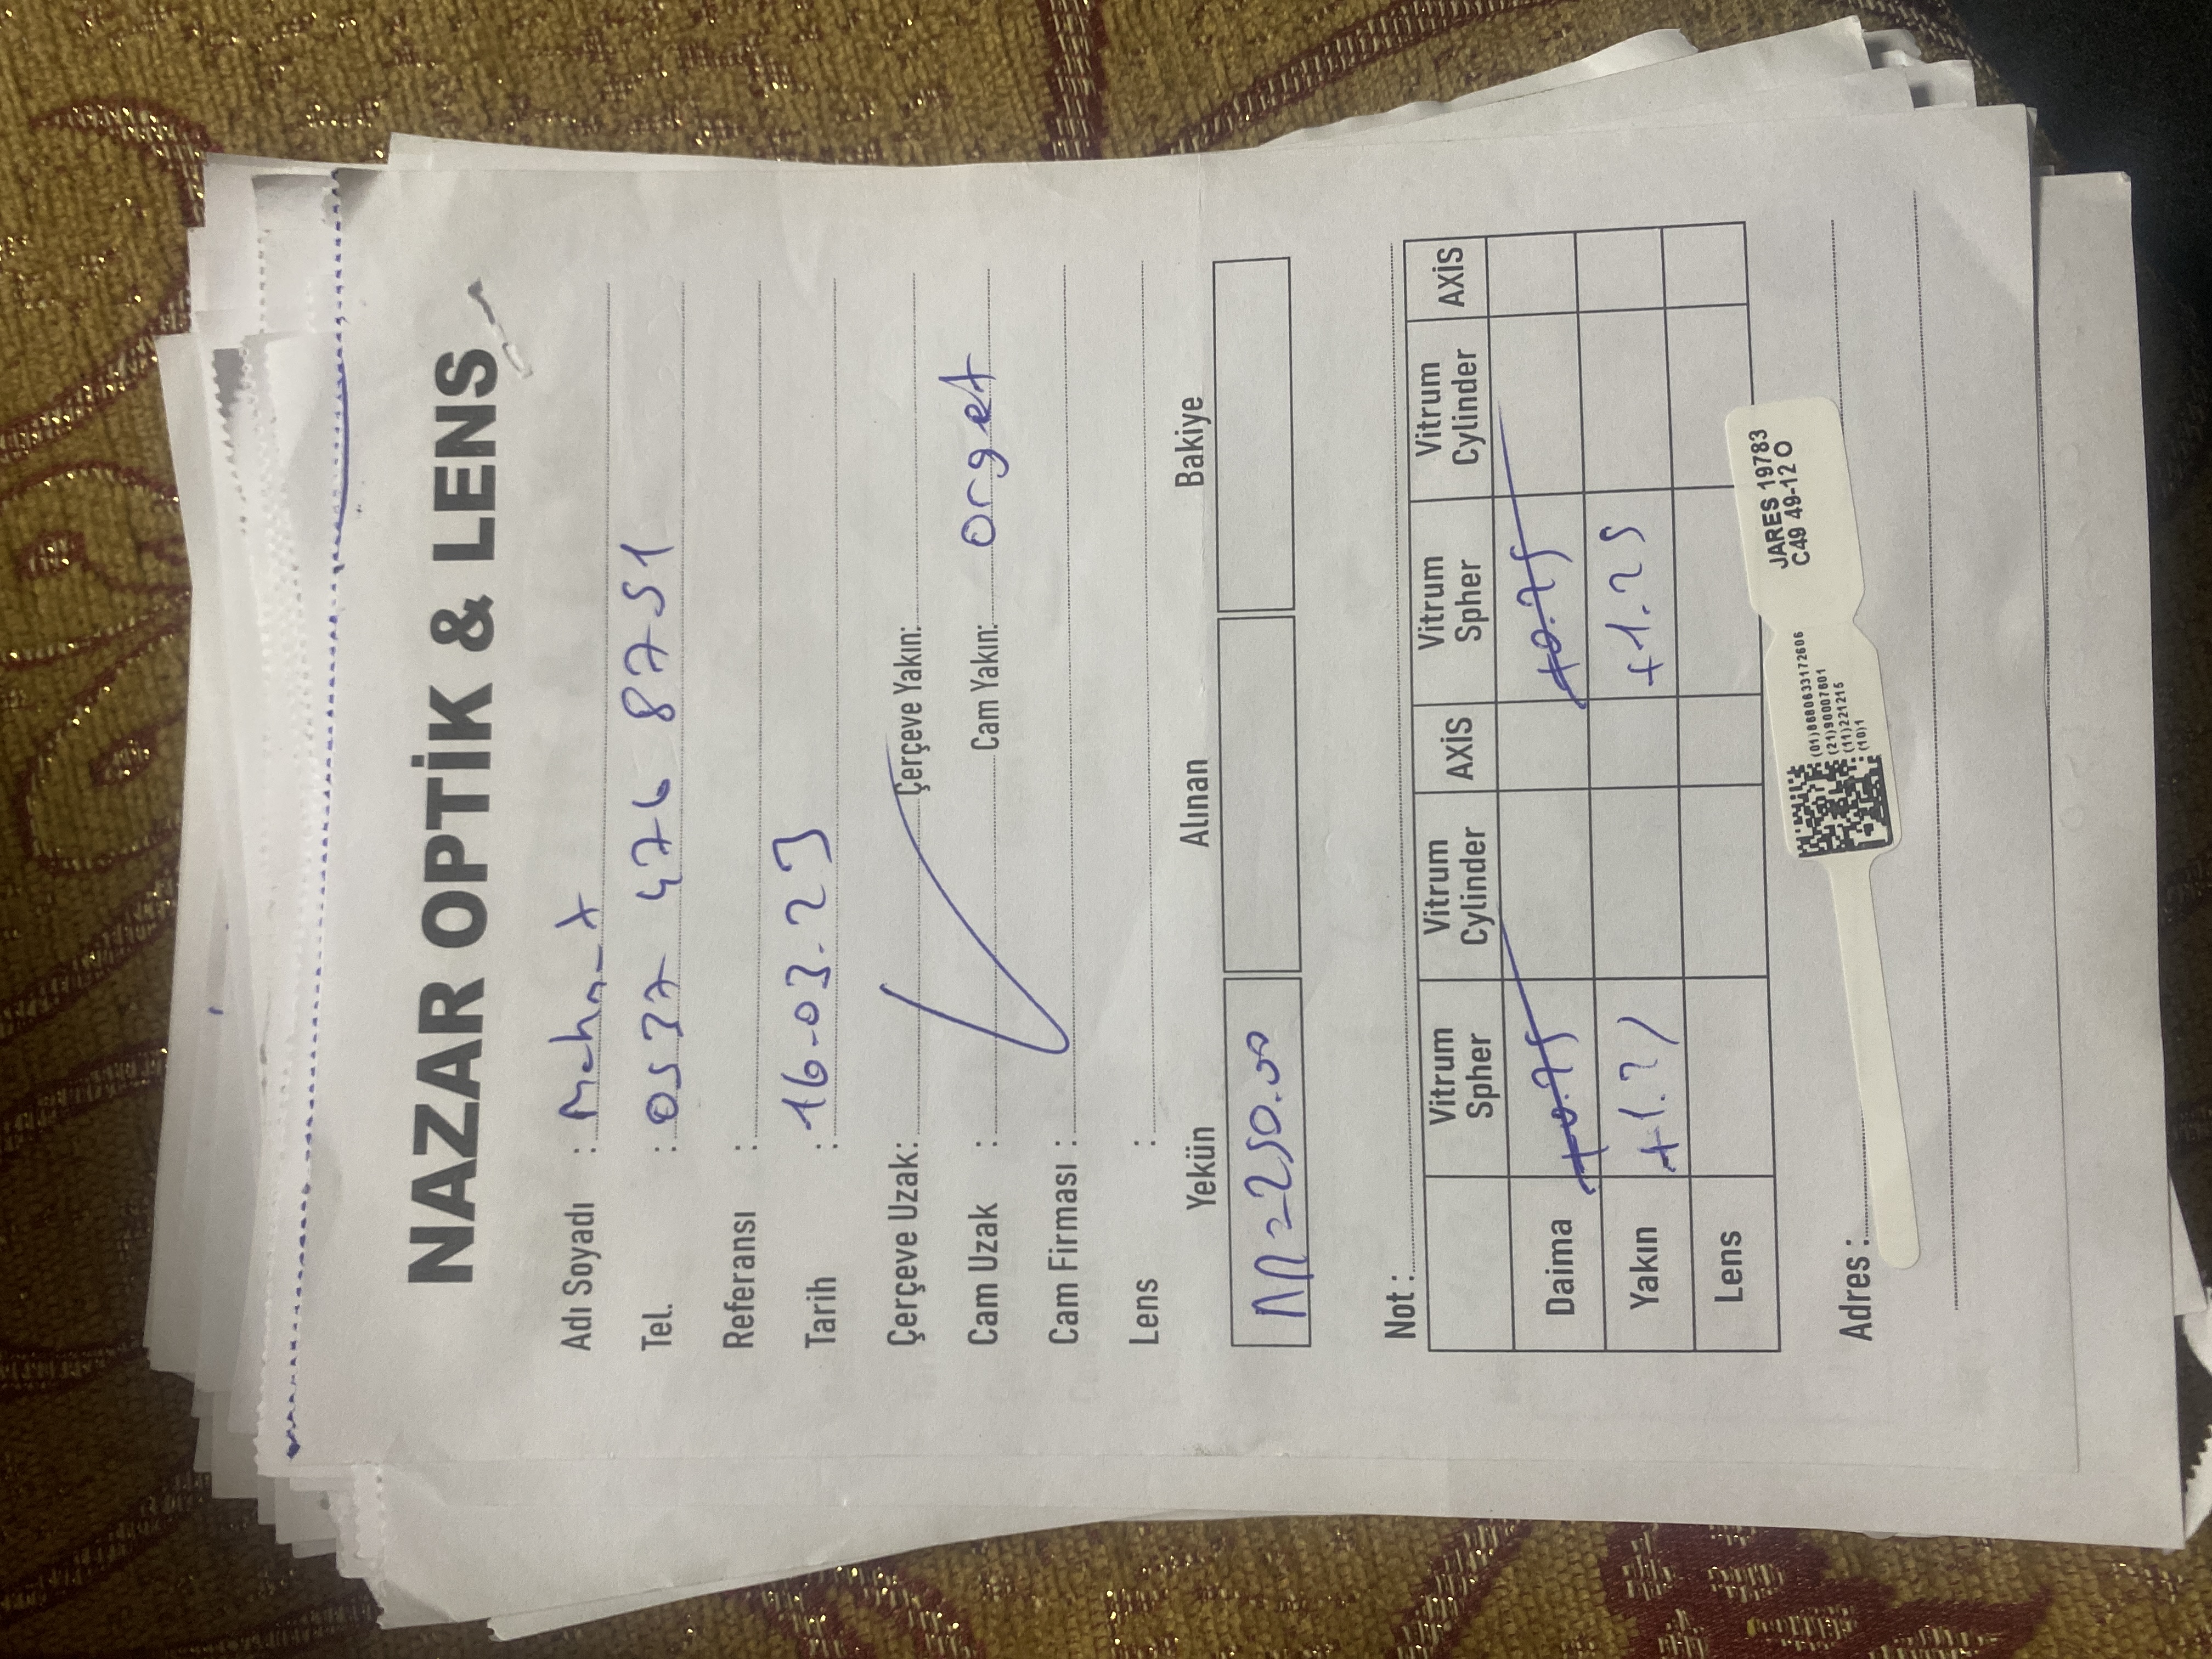 NAZAR OPTİK & LENS
Adı Soyadı : Mehmet
Tel. : 0537 476 8751
Referansı :
Tarih : 16-03.23
Çerçeve Uzak: Çerçeve Yakın:
Cam Uzak : Cam Yakın: orget
Cam Firması :
Lens :
Yekün Alınan Bakiye
=250.00
Not :
Vitrum Spher Vitrum Cylinder AXİS Vitrum Spher Vitrum Cylinder AXİS
Daima +0.75 +0.75
Yakın +1.25 +1.25
Lens
JARES 19783
C49 49-12 O
(01)8680633172606
(21)90007601
(11)221215
(10)1
Adres :